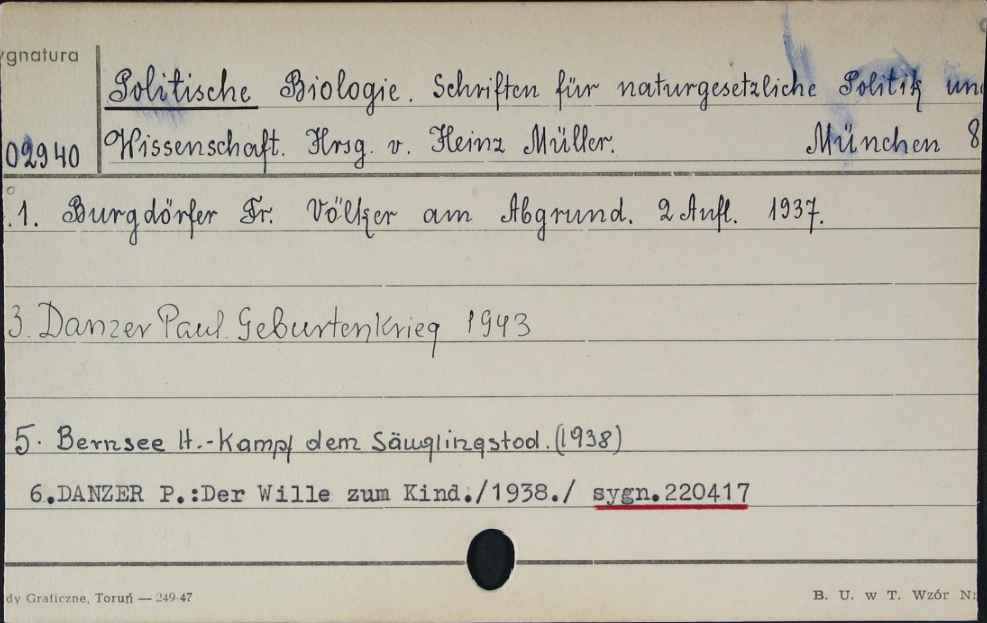 ygnatura
Politische Biologie. Schriften für naturgesetzliche Politik und
02940 Wissenschaft. Hrsg. v. Heinz Müller. München 8
.1. Burgdörfer Fr. Völker am Abgrund. 2 Aufl. 1937.
3. Danzer Paul. Geburtenkrieg 1943
5. Bernsee H.-Kampf dem Säuglingstod. (1938)
6.DANZER P.:Der Wille zum Kind./1938./ sygn.220417
dy Graficzne, Toruń — 249-47 B. U. w T. Wzór N: